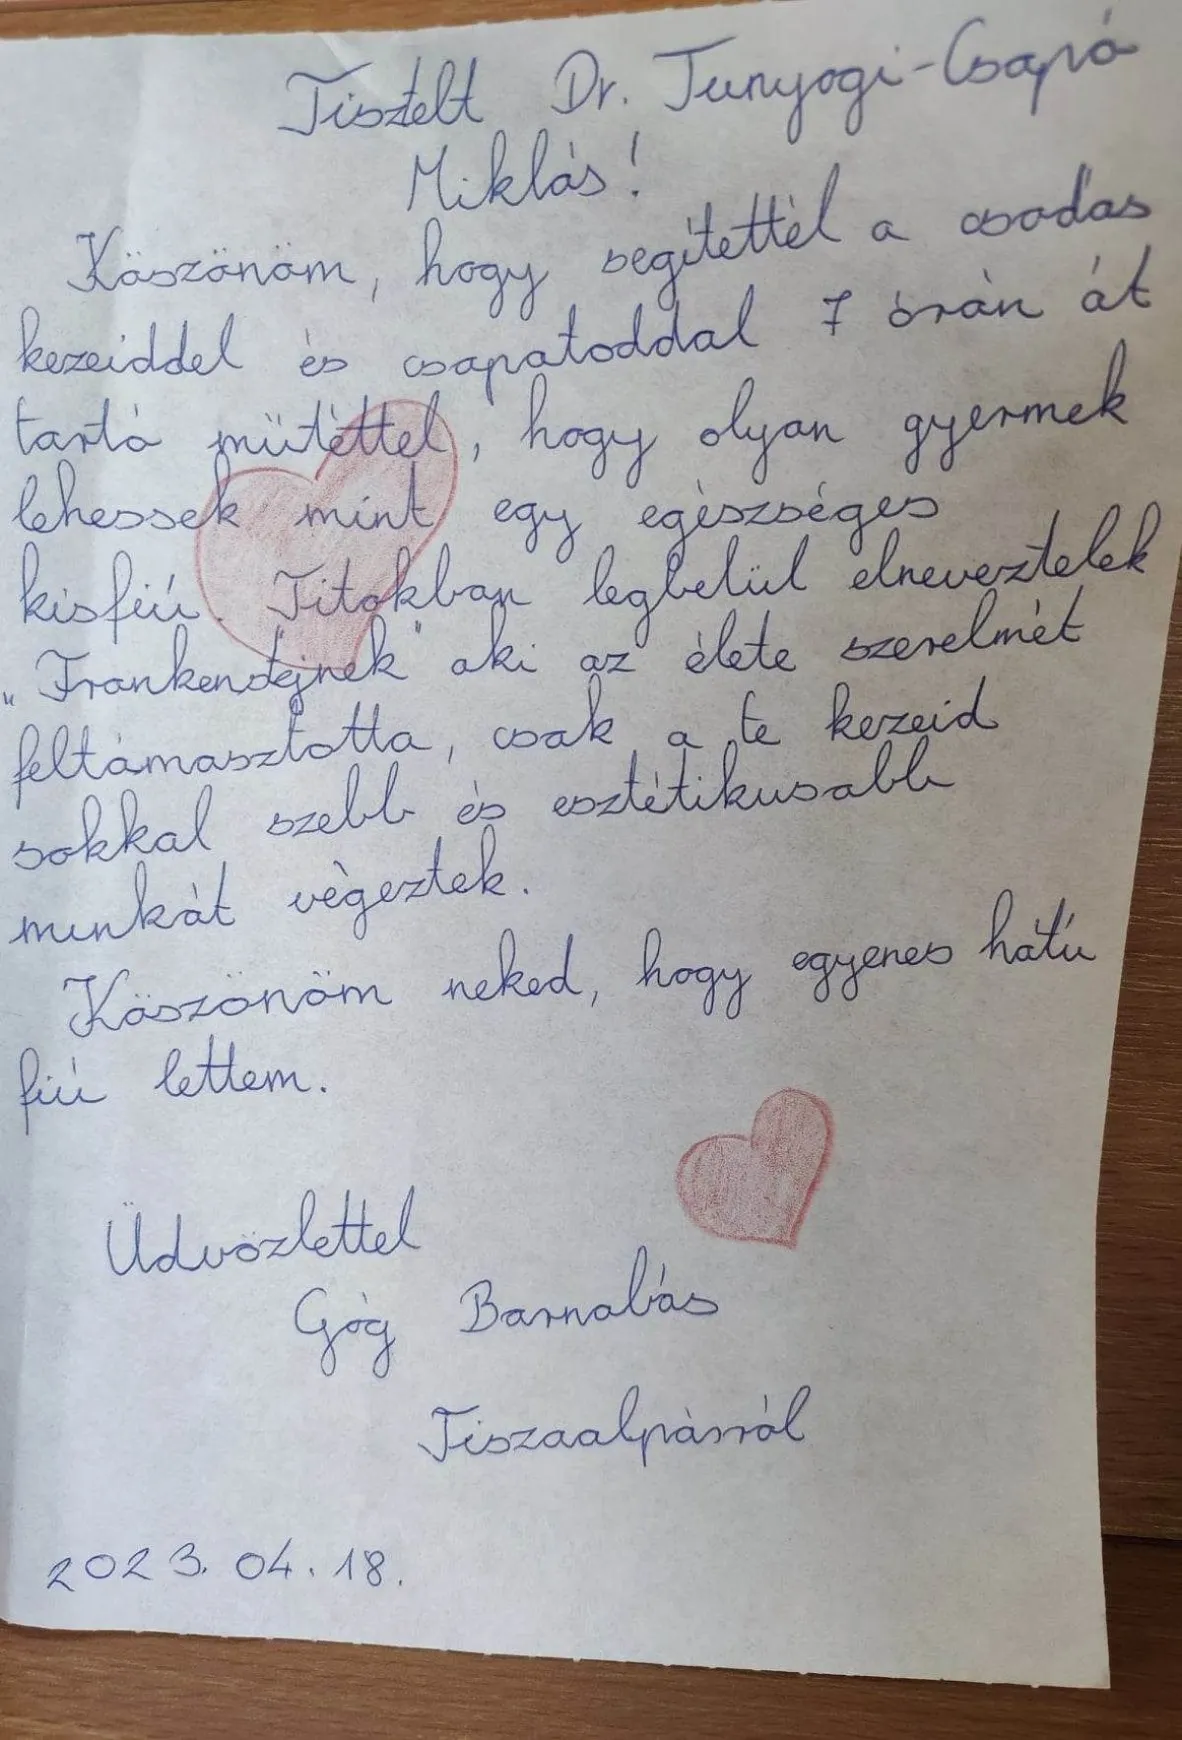 Tisztelt Dr. Tunyogi-Csapó
Miklós!
Köszönöm, hogy segítettél a csodás
kezeiddel és csapatoddal 7 órán át
tartó műtéttel, hogy olyan gyermek
lehessek mint egy egészséges
kisfiú. Titokban legbelül elneveztelek
„Frankenstejnek" aki az élete szerelmét
feltámasztotta, csak a te kezeid
sokkal szebb és esztétikusabb
munkát végeztek.
Köszönöm neked, hogy egyenes hátú
fiú lettem.
Üdvözlettel
Góg Barnabás
Tiszaalpárról
2023. 04. 18.